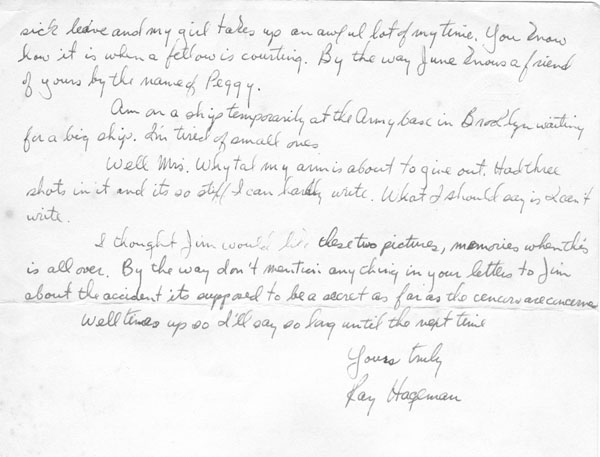 sick leave and my girl takes up an awful lot of my time. You know
how it is when a fellow is courting. By the way June knows a friend
of yours by the name of Peggy.
Am on a ship temporarily at the Army base in Brooklyn waiting
for a big ship. I'm tired of small ones
Well Mrs. Whytal my arm is about to give out. Had three
shots in it and its so stiff I can hardly write. What I should say is I can't
write.
I thought Jim would like these two pictures, memories when this
is all over. By the way don't mention anything in your letters to Jim
about the accident its supposed to be a secret as far as the are
Well times up so I'll say so long until the next time
Yours truly
Ray Hageman